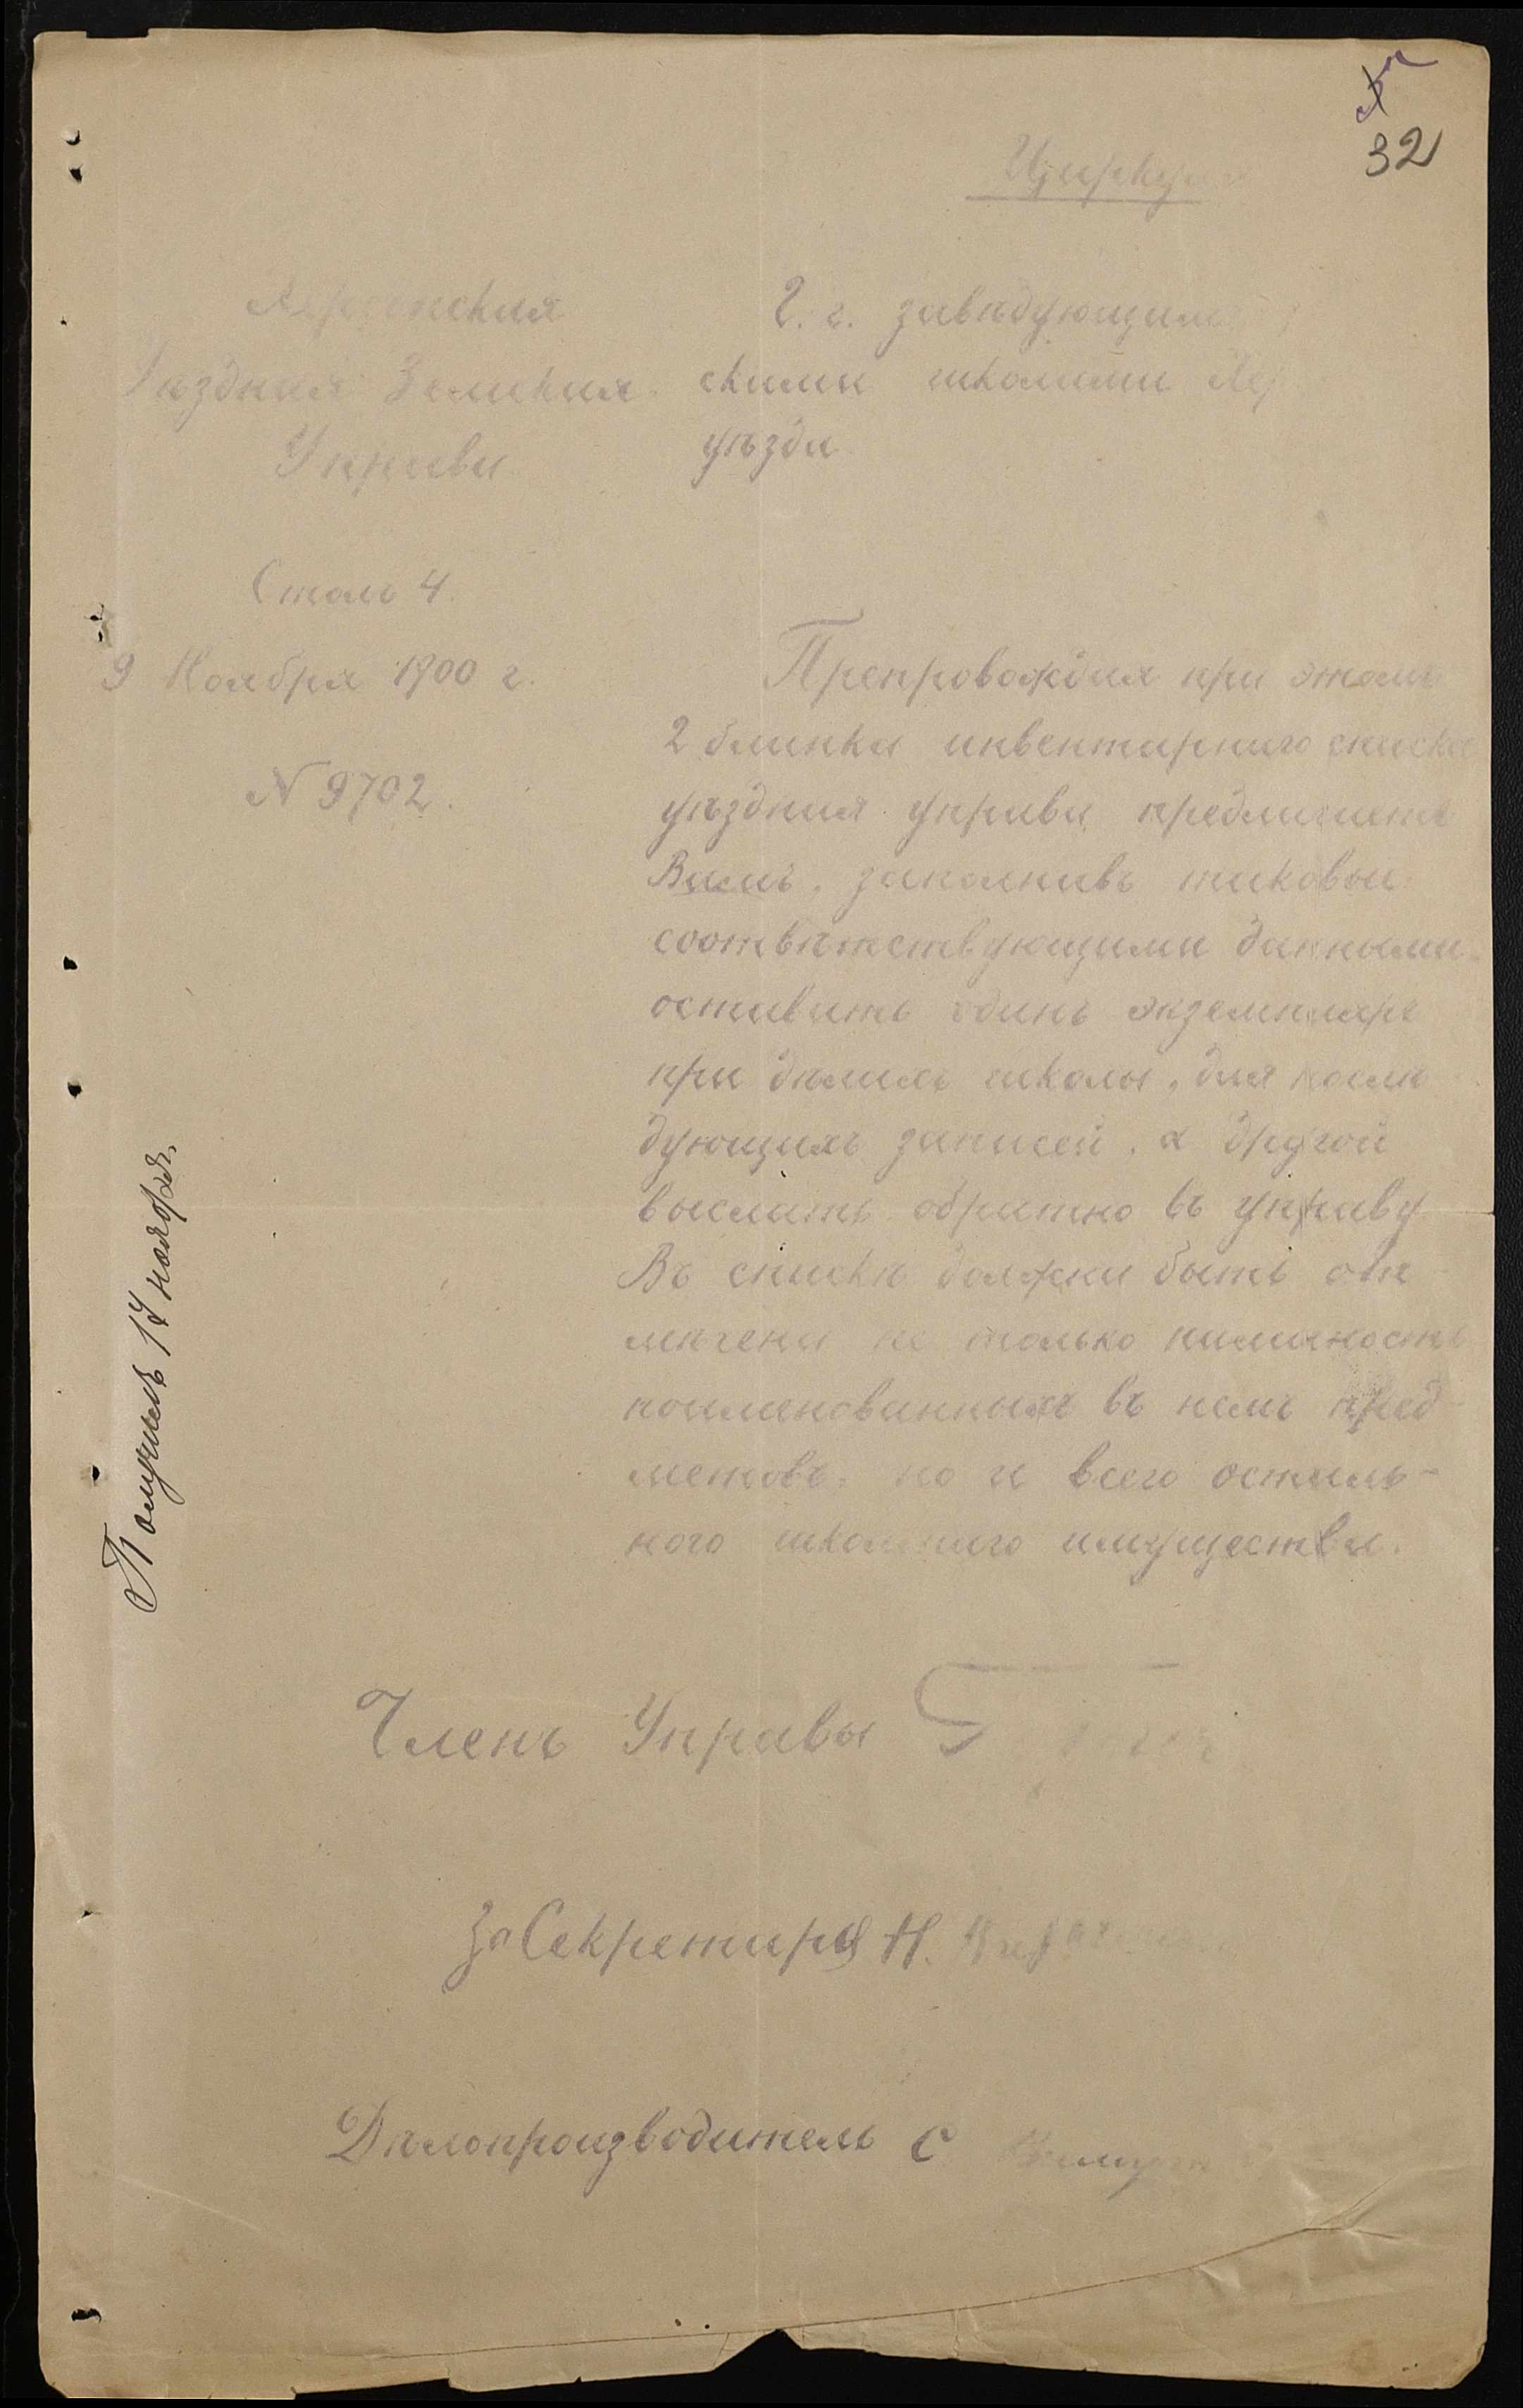 32
Циркуля
Херсонская
Уѣздная Земская
Управа
Г. г. завѣдующимъ
скими школами Хер
уѣзда
Столъ 4.
9 Ноября 1900 г.
N 9702.
Препровождая при этомъ
2 бланка инвентарнаго списка
уѣздная управа предлагаетъ
Вамъ, заполнивъ таковые
соотвѣтствующими данными,
оставить одинъ экземпляръ
при дѣлахъ школы, для послѣ
дующихъ записей, а другой
выслать обратно въ управу
Въ спискѣ должны быть от
мѣчена не только наличность
поименованныхъ въ немъ пред
метовъ, но и всего осталь-
ного школьнаго имущества.
Получилъ 14 ноября.
Членъ Управы
За Секретаря Н.
Дѣлопроизводитель С